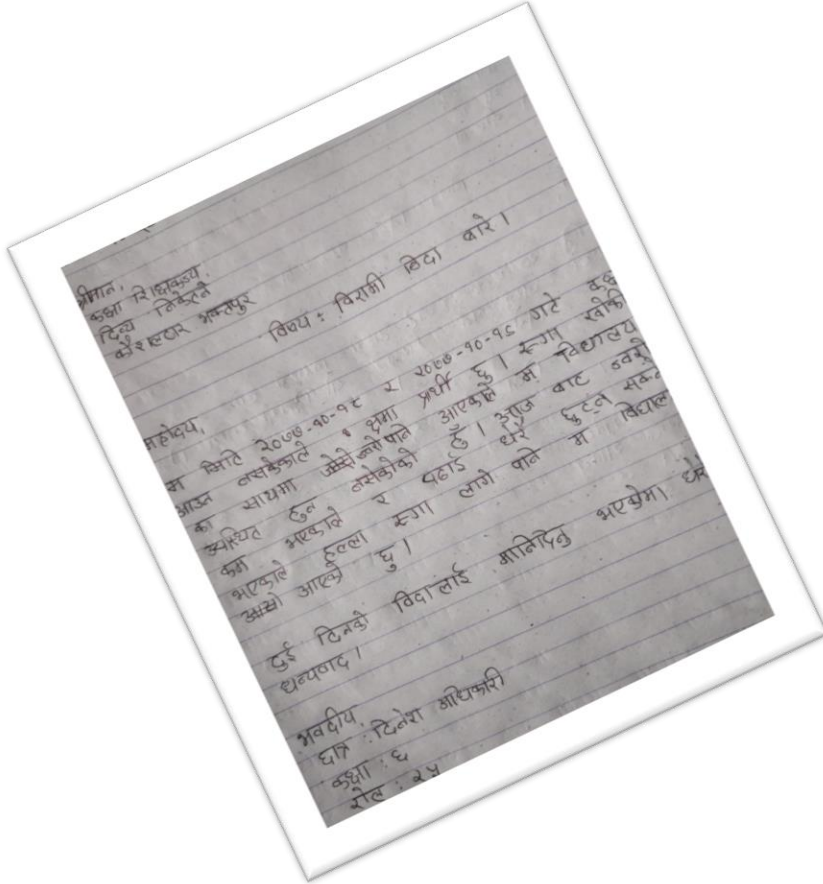 श्रीमान,
कक्षा शिक्षकज्य,
दिव्य निकेतन
कौशलटार भक्तपुर
विषय : विरामी विदा वारे ।
महोदय,
म मिति २०७७-१०-१८ र २०७७-१०-१९ गते कक्ष
आउन नसकेकाले क्षमा प्रर्थी छु । रुगा खोकी
का साथमा ज्वरो पनि आएकाले म विद्यालय
उपस्थित हुन नसकेको हुँ । आज बाट ज्वरो
कम भएकाले र पढाई धेरै छुट्न सक्ने
भएकाले हल्ला रुगा लागे पनि म विद्याल
आएको छु ।
दुई दिनको विदालाई मानिदिनु भएकोमा धेरै
धन्यवाद ।
भवदीय,
छात्र : दिनेश अधिकारी
कक्षा : ६
रोल : २५